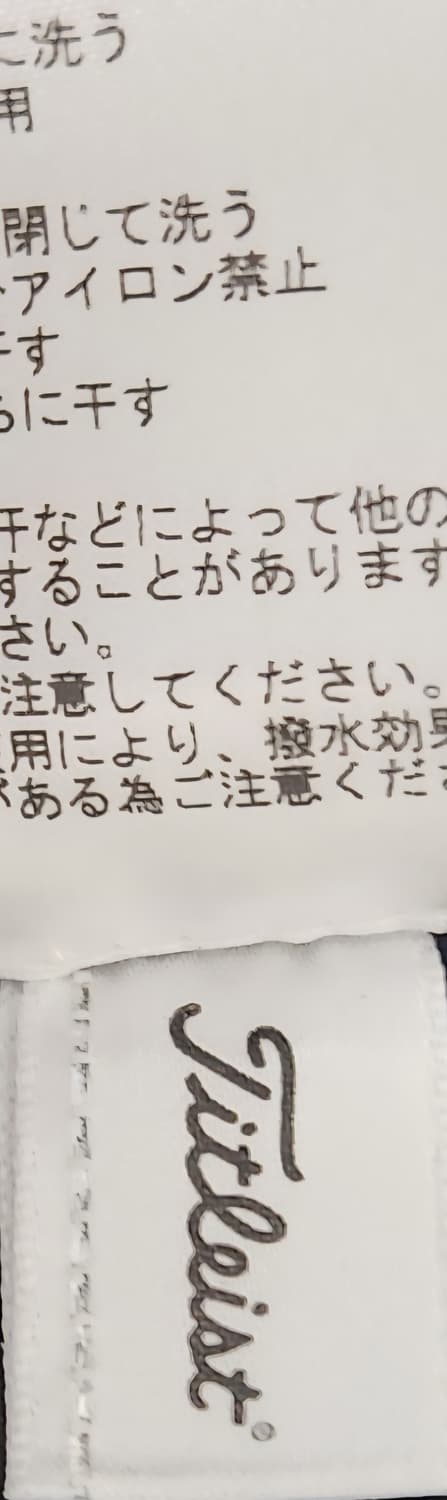 に洗う
用
閉じて洗う
アイロン禁止
干す
らに干す
汗などによって他の
することがあります
さい。
注意してください。
用により、撥水効果
がある為ご注意くださ
Titleist